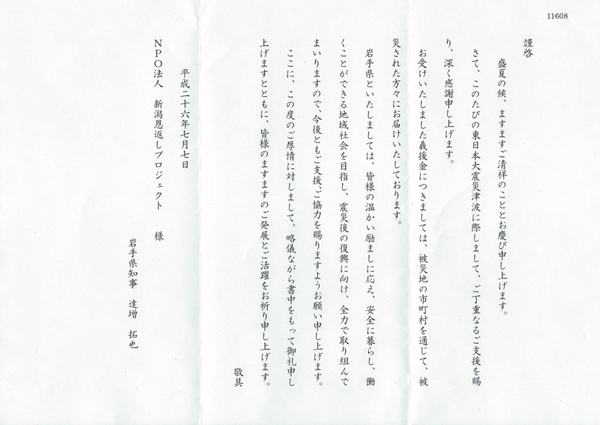 11608
謹啓
盛夏の候、ますますご清祥のこととお慶び申し上げます。
さて、このたびの東日本大震災津波に際しまして、ご丁重なるご支援を賜
り、深く感謝申し上げます。
お受けいたしました義援金につきましては、被災地の市町村を通じて、被
災された方々にお届けいたしております。
岩手県といたしましては、皆様の温かい励ましに応え、安全に暮らし、働
くことができる地域社会を目指し、震災後の復興に向け、全力で取り組んで
まいりますので、今後ともご支援、ご協力を賜りますようお願い申し上げます。
ここに、この度のご厚情に対しまして、略儀ながら書中をもって御礼申し
上げますとともに、皆様のますますのご発展とご活躍をお祈り申し上げます。
敬具
平成二十六年七月七日
NPO法人 新潟恩返しプロジェクト 様
岩手県知事 達増 拓也